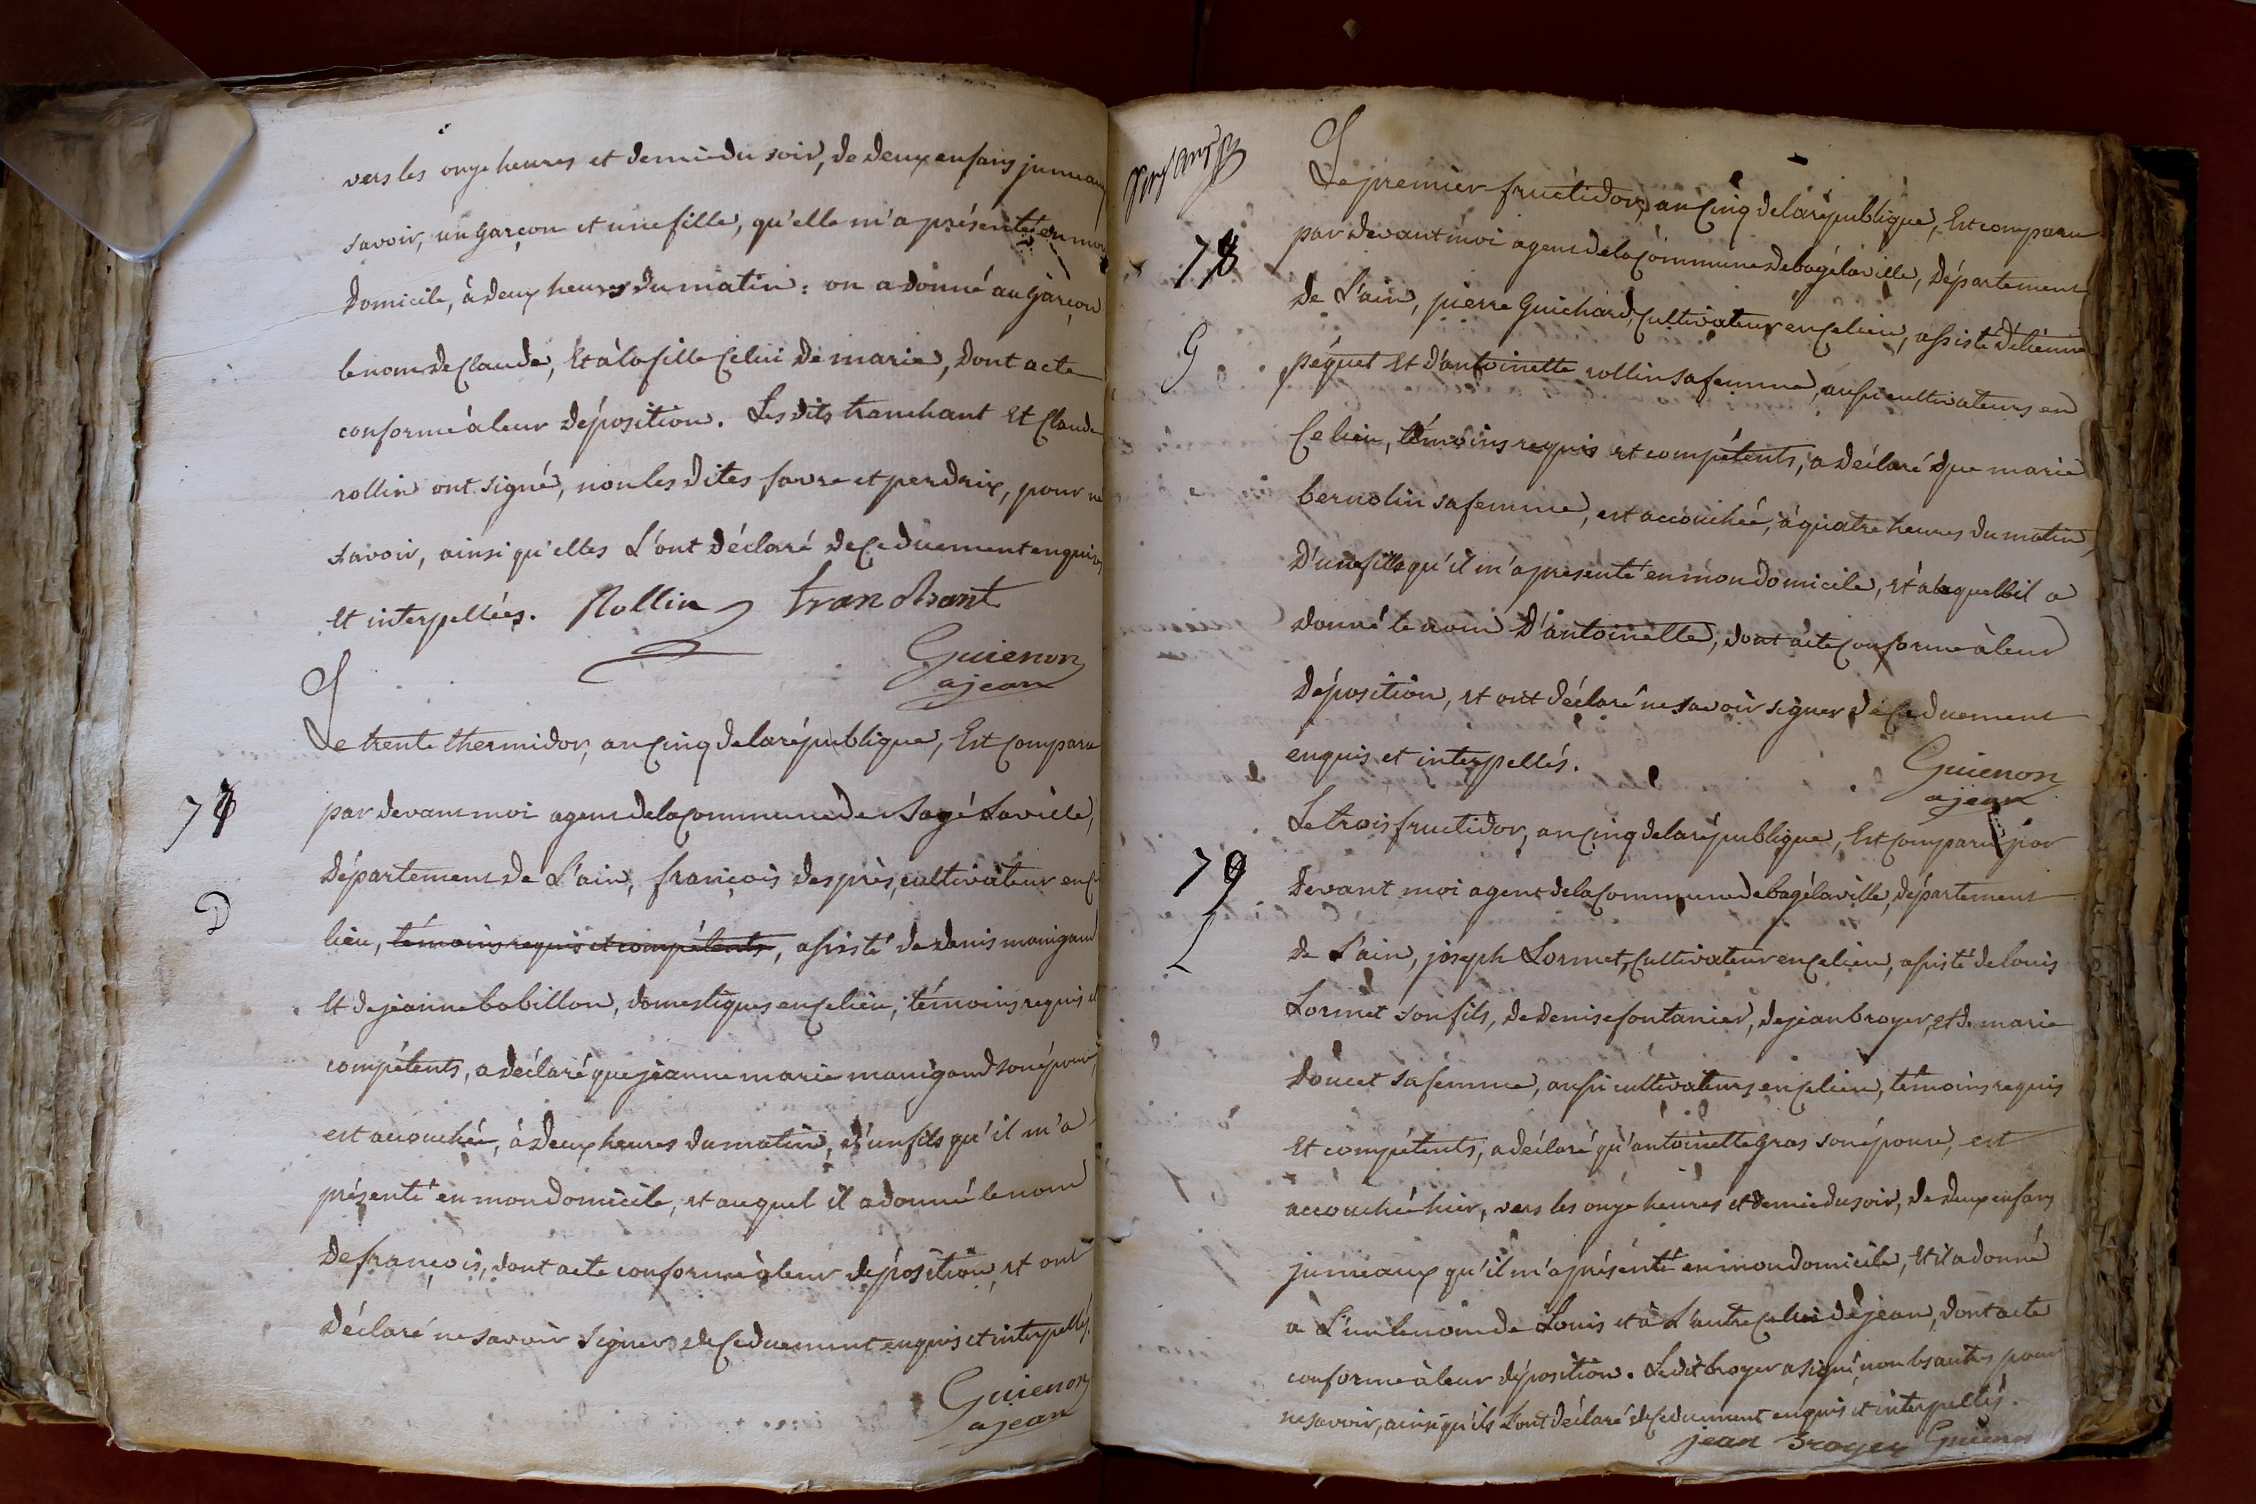 vers les onze heures et demie du soir, de deux enfans jumeaux
savoir, un garçon et une fille, qu'elle m'a présenté en mon
domicile, à deux heures du matin : on a donné au garçon
le nom de Claude, Et à la fille Celui de marie, dont acte
conforme à leur déposition. Les dits tranchant Et Claude
rollin ont signé, non les dites favre et perdrix, pour ne
savoir, ainsi qu'elles L'ont déclaré de Ce duement enquises
Et interpellées. Rollin tranchant
Guienon
agean
Le trente thermidor, an Cinq de la république, Est Comparu
par devant moi agent de la Commune de Bagé Laville,
département de L'ain, françois desprès, cultivateur en Ce
D
lieu, témoins requis et compétents, assisté de denis manigand
Et de jeanne bobillon, domestiques en Ce lieu, témoins requis et
compétents, a déclaré que jeanne marie manigand son épouse,
est accouchée, à deux heures du matin, d'un fils qu'il m'a
présenté en mon domicile, et auquel il a donné le nom
de françois, dont acte conforme à leur déposition, et ont
déclaré ne savoir signer de Ce duement enquis et interpellés.
Guienon
agean
Le premier fructidor, an Cinq de la république, Est comparu
78
par devant moi agent de la Commune de bagé laville, département
de L'ain, pierre Guichard, Cultivateur en Ce lieu, assisté d'étienne
G
péquet Et d'antoinette rollin sa femme, aussi cultivateurs en
Ce lieu, témoins requis et compétents, a déclaré que marie
bernolin sa femme, est accouchée, à quatre heures du matin,
D'une fille qu'il m'a présenté en mon domicile, et à laquelle il a
donné le nom D'antoinette, dont acte Conforme à leur
déposition, et ont déclaré ne savoir signer de Ce duement
enquis et interpellés.
Guienon
agean
Le trois fructidor, an Cinq de la république, Est Comparu par
79
devant moi agent de la Commune de bagé laville, département
L
de L'ain, joseph Lormet, Cultivateur en Ce lieu, assisté de louis
Lormet son fils, de denise fontanier, de jean broyer, et de marie
doucet sa femme, aussi cultivateurs en Ce lieu, témoins requis
Et compétents, a déclaré qu'antoinette gras son épouse, est
accouchée hier, vers les onze heures et demie du soir, de deux enfans
jumeaux qu'il m'a présenté en mon domicile, Et il a donné
a L'un le nom de Louis et à L'autre Celui de jean, dont acte
conforme à leur déposition. Ledit broyer a signé, non les autres pour
ne savoir, ainsi qu'ils L'ont déclaré de Ce duement enquis et interpellés.
jean Broyer Guienon